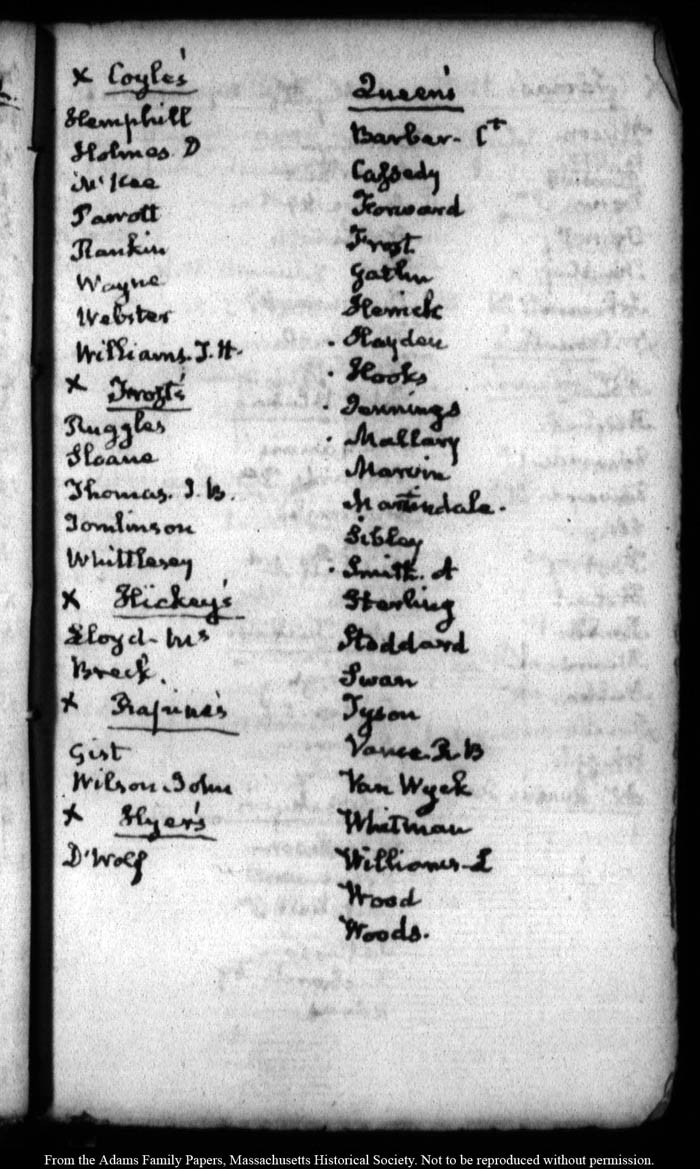 x Coyle's
Hemphill
Holmes. D
McKee
Parrott
Rankin
Wayne
Webster
Williams. T. H.
x Frost's
Ruggles
Sloane
Thomas. J. B.
Tomlinson
Whittlesey
x Hickey's
Lloyd - Ms
Breck.
x Rapine's
Gist
Wilson. John
x Hyer's
D'Wolf
Queen's
Barber - Ct
Cassedy
Forward
Frost
Gatlin
Herrick
. Hayden
. Hooks
. Jennings
. Mallary
Marvin
Martindale.
Sibley
. Smith. A
Sterling
Stoddard
Swan
Tyson
Vance. R B
Van Wyck
Whitman
Williams - L
Wood
Woods.
From the Adams Family Papers, Massachusetts Historical Society. Not to be reproduced without permission.